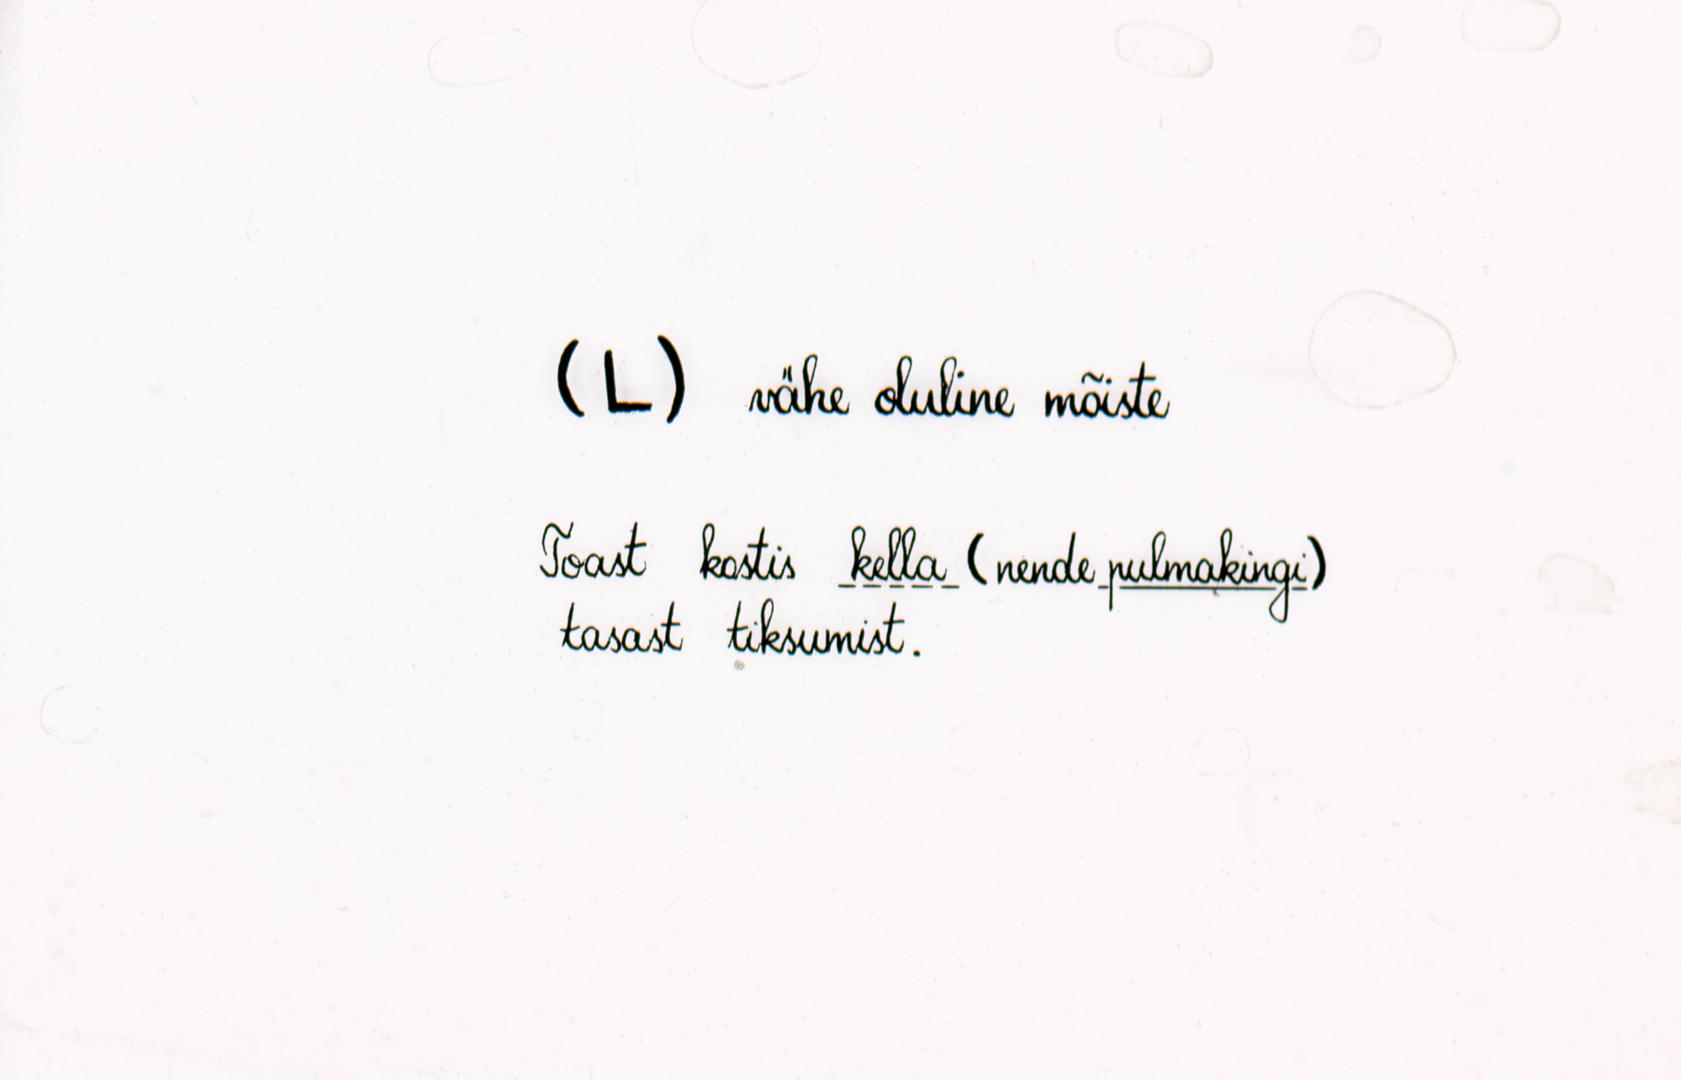 (L) vähe oluline mõiste
Toast kostis kella (nende pulmakingi)
tasast tiksumist.